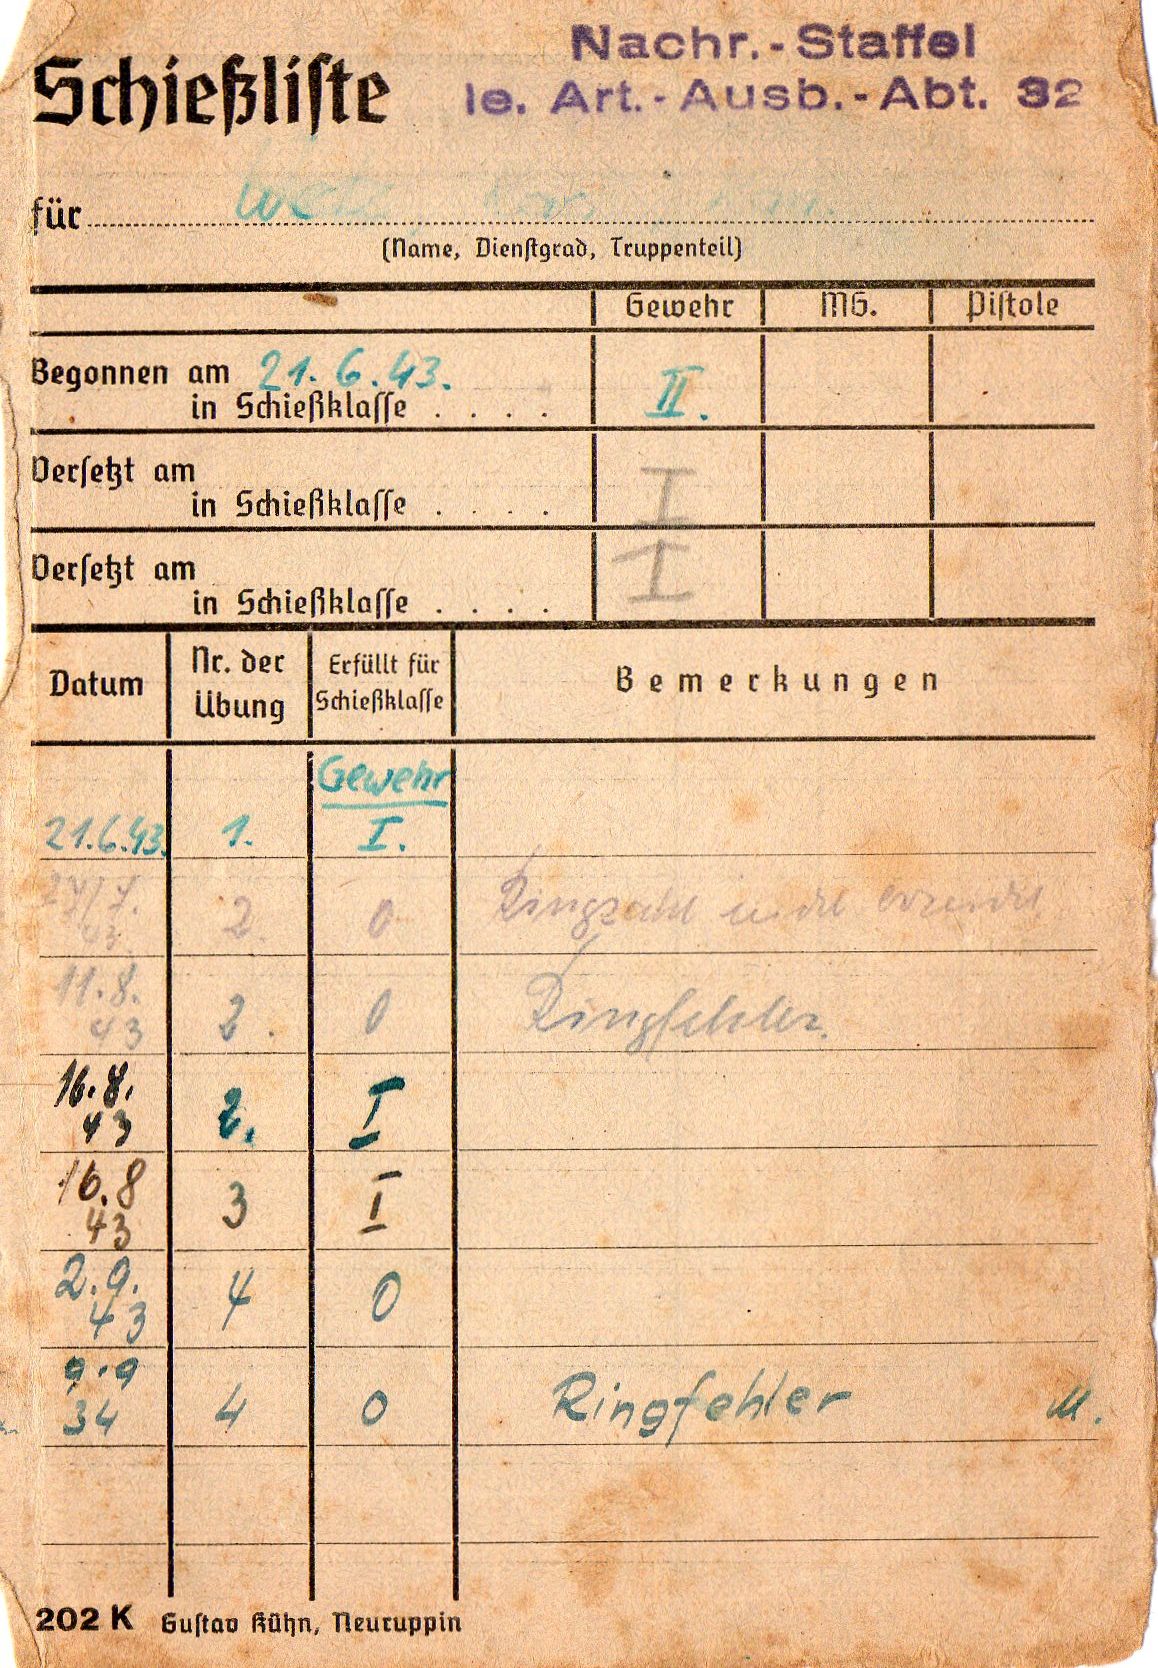 Nachr.-Staffel
Schießliste le. Art.-Ausb.-Abt. 32
für
(Name, Dienstgrad, Truppenteil)
Gewehr MG. Pistole
Begonnen am 21.6.43.
in Schießklasse . . . . II.
Versetzt am
in Schießklasse . . . . I
Versetzt am
in Schießklasse . . . . I
Datum Nr. der Übung Erfüllt für Schießklasse Bemerkungen
Gewehr
21.6.43. 1. I.
43. 2. 0 Ringzahl
11.8. 43 2. 0 Ringfehler.
16.8. 43 2. I
16.8 43 3 I
2.9. 43 4 0
9.9 34 4 0 Ringfehler
202 K Gustav Kühn, Neuruppin